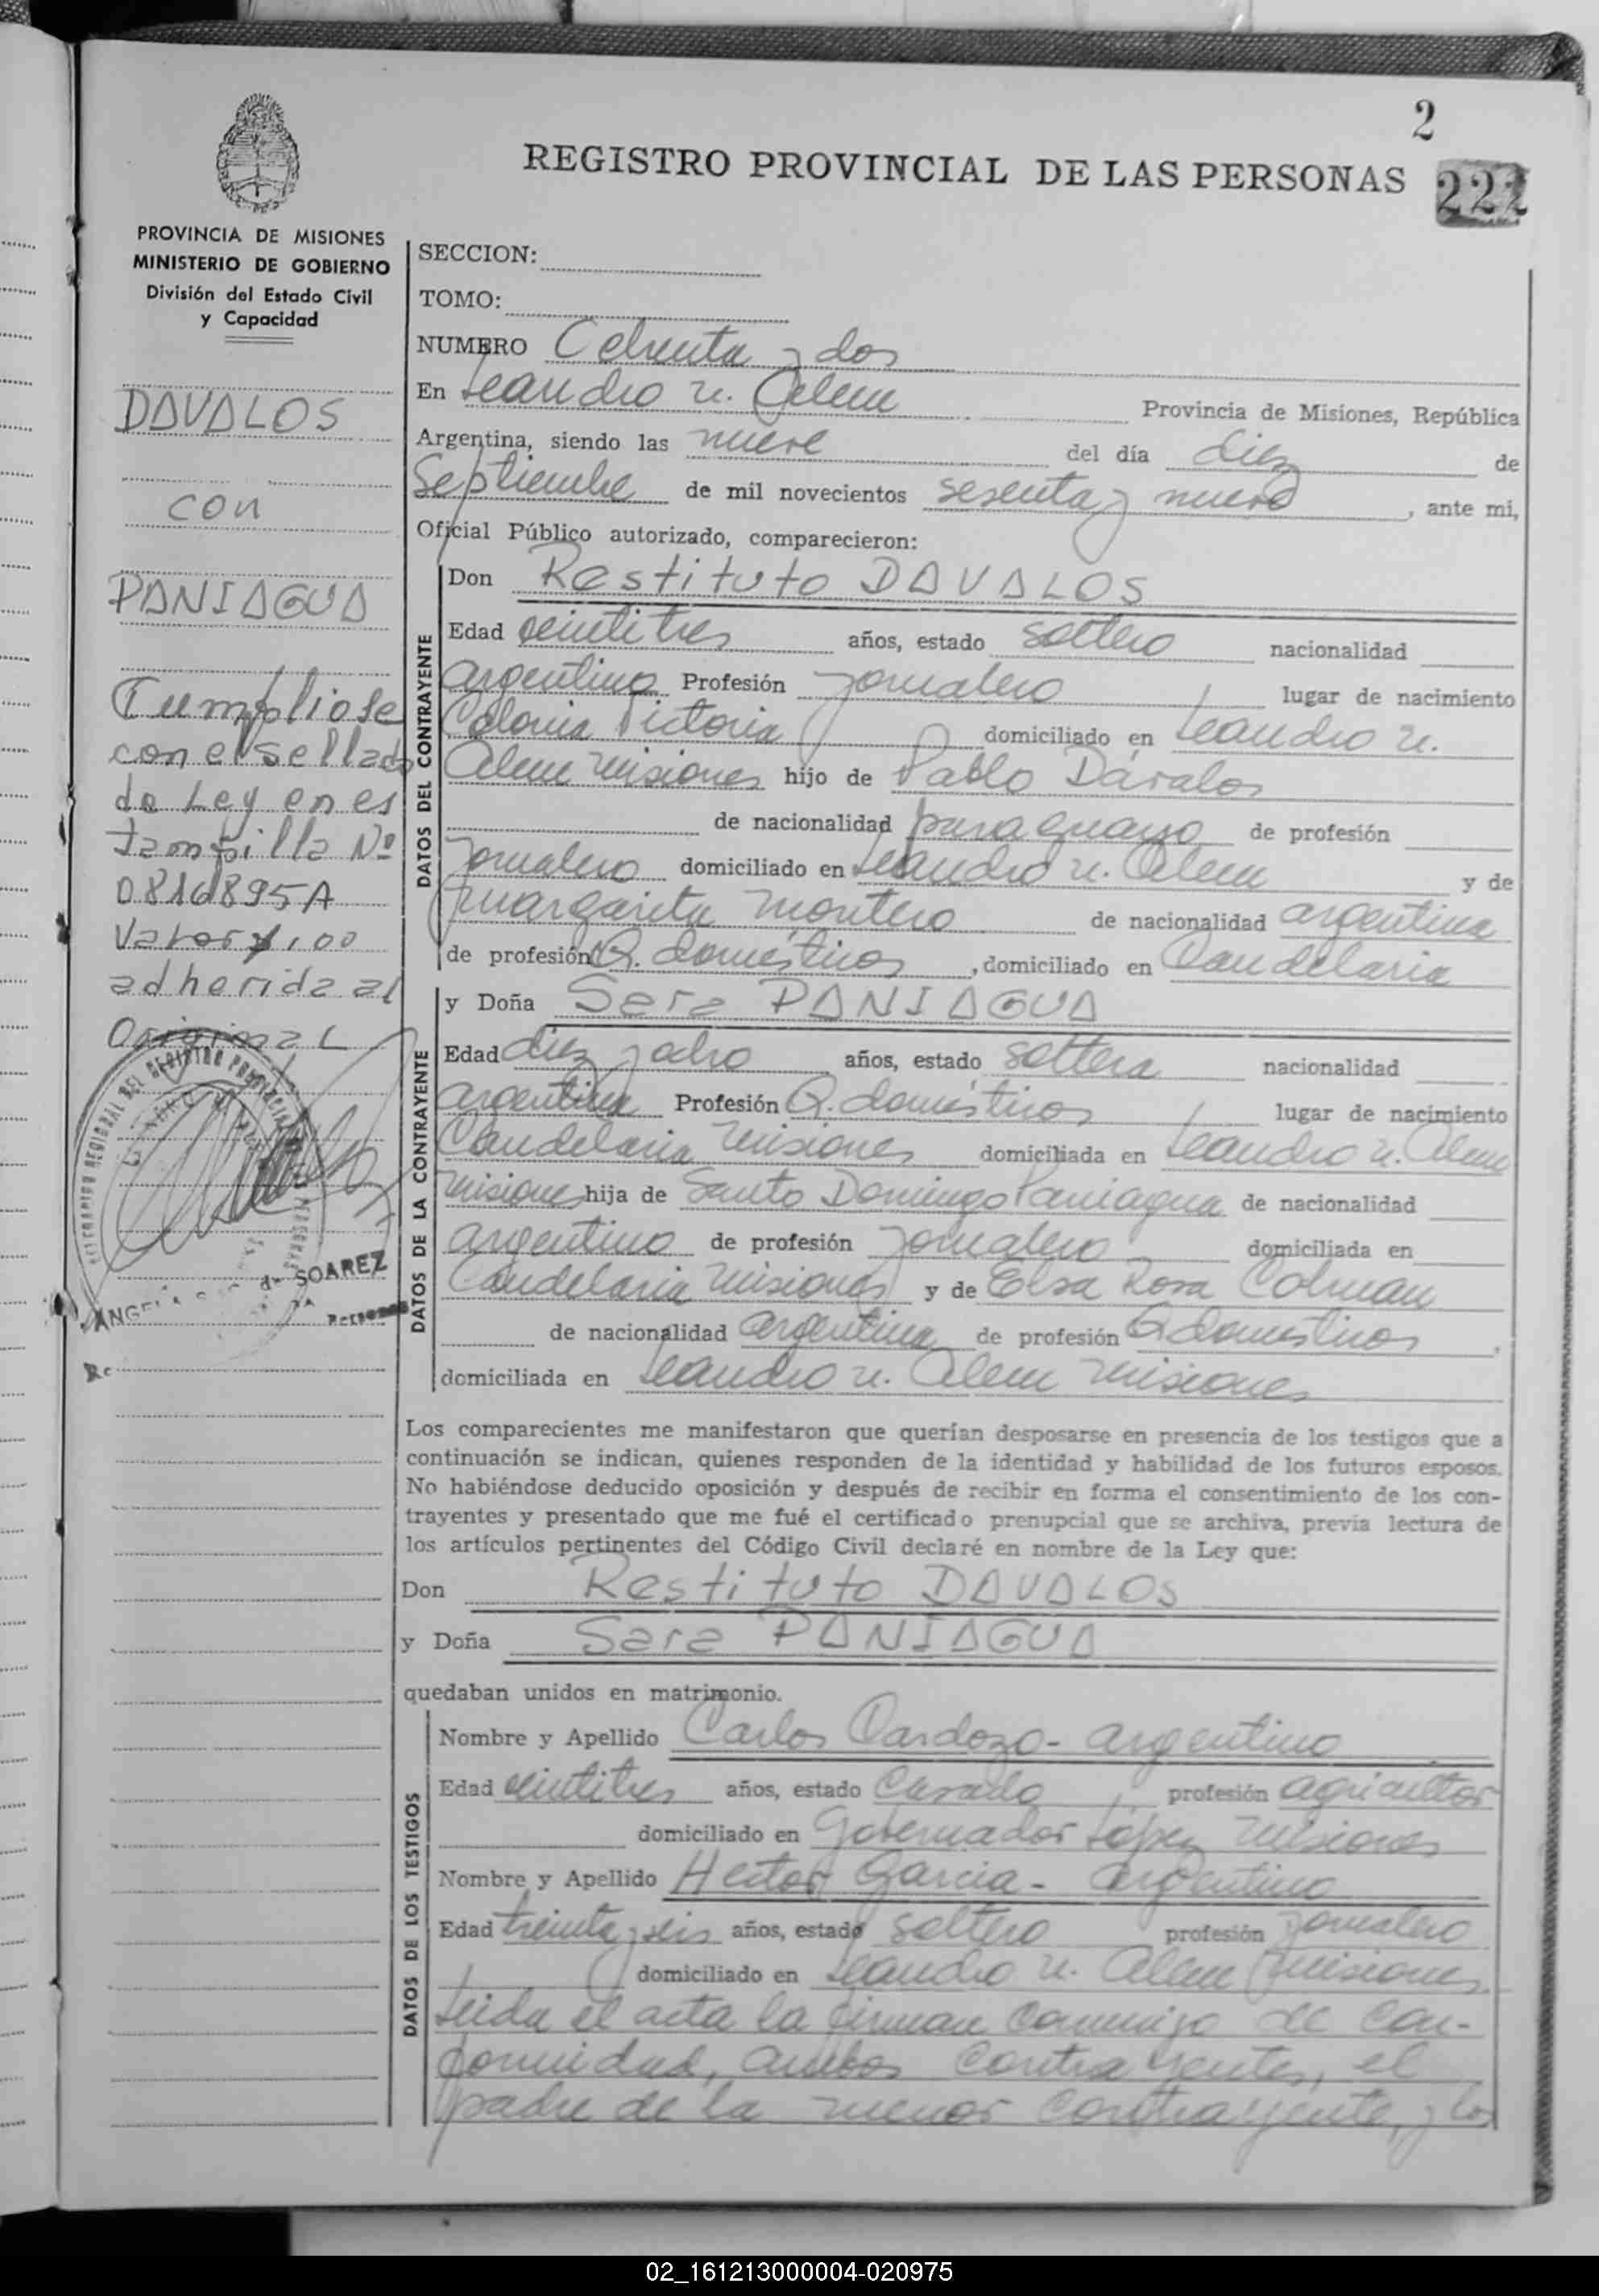 2
REGISTRO PROVINCIAL DE LAS PERSONAS
222
PROVINCIA DE MISIONES
MINISTERIO DE GOBIERNO
División del Estado Civil
y Capacidad
DAVALOS
con
PANIAGUA
Cumpliose
con el sellado
de Ley en es
tampilla Nº
0816895A
Valor $1,00
adherida al
Original
de SOAREZ
SECCION:
TOMO:
NUMERO Ochenta y dos
En Leandro N. Alem Provincia de Misiones, República
Argentina, siendo las nueve del día diez de
Septiembre de mil novecientos sesenta y nueve, ante mi,
Oficial Público autorizado, comparecieron:
DATOS DEL CONTRAYENTE
Don Restituto DAVALOS
Edad veintitres años, estado soltero nacionalidad
argentina Profesión jornalero lugar de nacimiento
Colonia Victoria domiciliado en Leandro N.
Alem Misiones hijo de Pablo Dávalos
de nacionalidad paraguayo de profesión
jornalero domiciliado en Leandro N. Alem y de
Margarita Montero de nacionalidad argentina
de profesión Q. domésticos, domiciliado en Candelaria
DATOS DE LA CONTRAYENTE
y Doña Sara PANIAGUA
Edad diez y ocho años, estado soltera nacionalidad
argentina Profesión Q. domésticos lugar de nacimiento
Candelaria Misiones domiciliada en Leandro N. Alem
Misiones hija de Santo Domingo Paniagua de nacionalidad
argentino de profesión jornalero domiciliada en
Candelaria Misiones y de Elsa Rosa Colman
de nacionalidad argentina de profesión Q domesticos,
domiciliada en Leandro N. Alem Misiones
Los comparecientes me manifestaron que querían desposarse en presencia de los testigos que a
continuación se indican, quienes responden de la identidad y habilidad de los futuros esposos.
No habiéndose deducido oposición y después de recibir en forma el consentimiento de los con-
trayentes y presentado que me fué el certificado prenupcial que se archiva, previa lectura de
los artículos pertinentes del Código Civil declaré en nombre de la Ley que:
Don Restituto DAVALOS
y Doña Sara PANIAGUA
quedaban unidos en matrimonio.
DATOS DE LOS TESTIGOS
Nombre y Apellido Carlos Cardozo - argentino
Edad veintitres años, estado Casado profesión agricultor
domiciliado en Gobernador López Misiones
Nombre y Apellido Hector Garcia - argentino
Edad treinta y seis años, estado soltero profesión jornalero
domiciliado en Leandro N. Alem Misiones
Leida el acta la firman conmigo de con-
formidad, ambos contrayentes, el
padre de la menor contrayente, y los
02_161213000004-020975